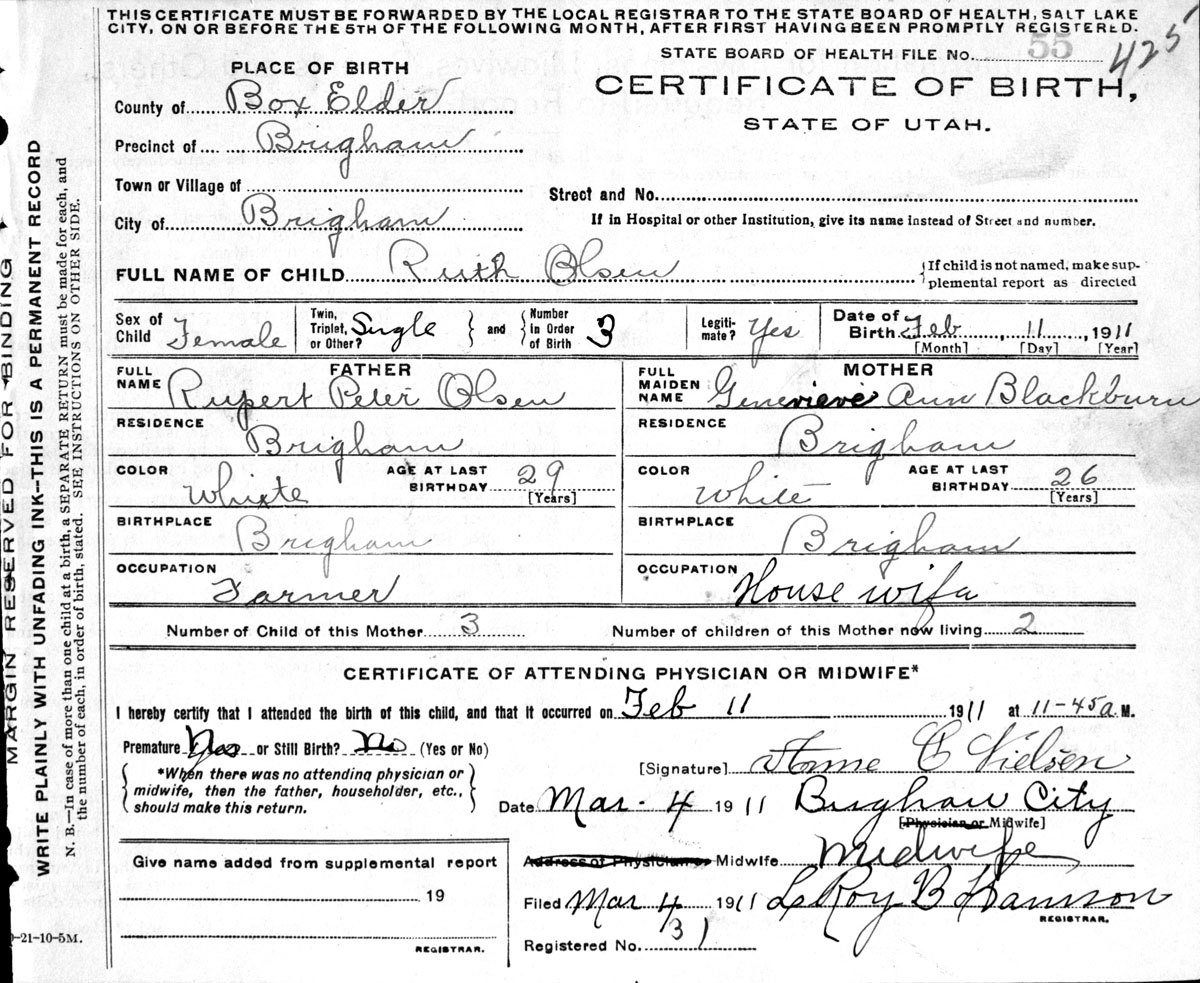 THIS CERTIFICATE MUST BE FORWARDED BY THE LOCAL REGISTRAR TO THE STATE BOARD OF HEALTH, SALT LAKE
CITY, ON OR BEFORE THE 5TH OF THE FOLLOWING MONTH, AFTER FIRST HAVING BEEN PROMPTLY REGISTERED.
STATE BOARD OF HEALTH FILE NO. 55 425
PLACE OF BIRTH
CERTIFICATE OF BIRTH,
STATE OF UTAH.
County of Box Elder
Precinct of Brigham
Town or Village of
Street and No.
City of Brigham
If in Hospital or other Institution, give its name instead of Street and number.
FULL NAME OF CHILD Ruth Olsen
{If child is not named, make sup-
plemental report as directed
Sex of Child Female
Twin, Triplet, or Other? Single } and { Number in Order of Birth 3
Legiti-mate? Yes
Date of Birth Feb, 11, 1911
[Month] [Day] [Year]
FATHER
FULL NAME Rupert Peter Olsen
RESIDENCE Brigham
COLOR Whixte
AGE AT LAST BIRTHDAY 29
[Years]
BIRTHPLACE Brigham
OCCUPATION Farmer
MOTHER
FULL MAIDEN NAME Genevieve Ann Blackburn
RESIDENCE Brigham
COLOR White
AGE AT LAST BIRTHDAY 26
[Years]
BIRTHPLACE Brigham
OCCUPATION House wifa
Number of Child of this Mother 3
Number of children of this Mother now living 2
CERTIFICATE OF ATTENDING PHYSICIAN OR MIDWIFE*
I hereby certify that I attended the birth of this child, and that it occurred on Feb 11 1911 at 11-45a. M.
Premature Yes or Still Birth? No (Yes or No)
{ *When there was no attending physician or
midwife, then the father, householder, etc.,
should make this return. }
[Signature] C Nielsen
Date Mar - 4 1911 Brigham City
[Physician or Midwife]
Address of Physician or Midwife Midwife
Filed Mar 4 1911 LeRoy B
REGISTRAR.
Registered No. 31
Give name added from supplemental report
19
REGISTRAR.
-21-10-5M.
MARGIN RESERVED FOR BINDING
WRITE PLAINLY WITH UNFADING INK--THIS IS A PERMANENT RECORD
N. B.—In case of more than one child at a birth, a SEPARATE RETURN must be made for each, and
the number of each, in order of birth, stated. SEE INSTRUCTIONS ON OTHER SIDE.